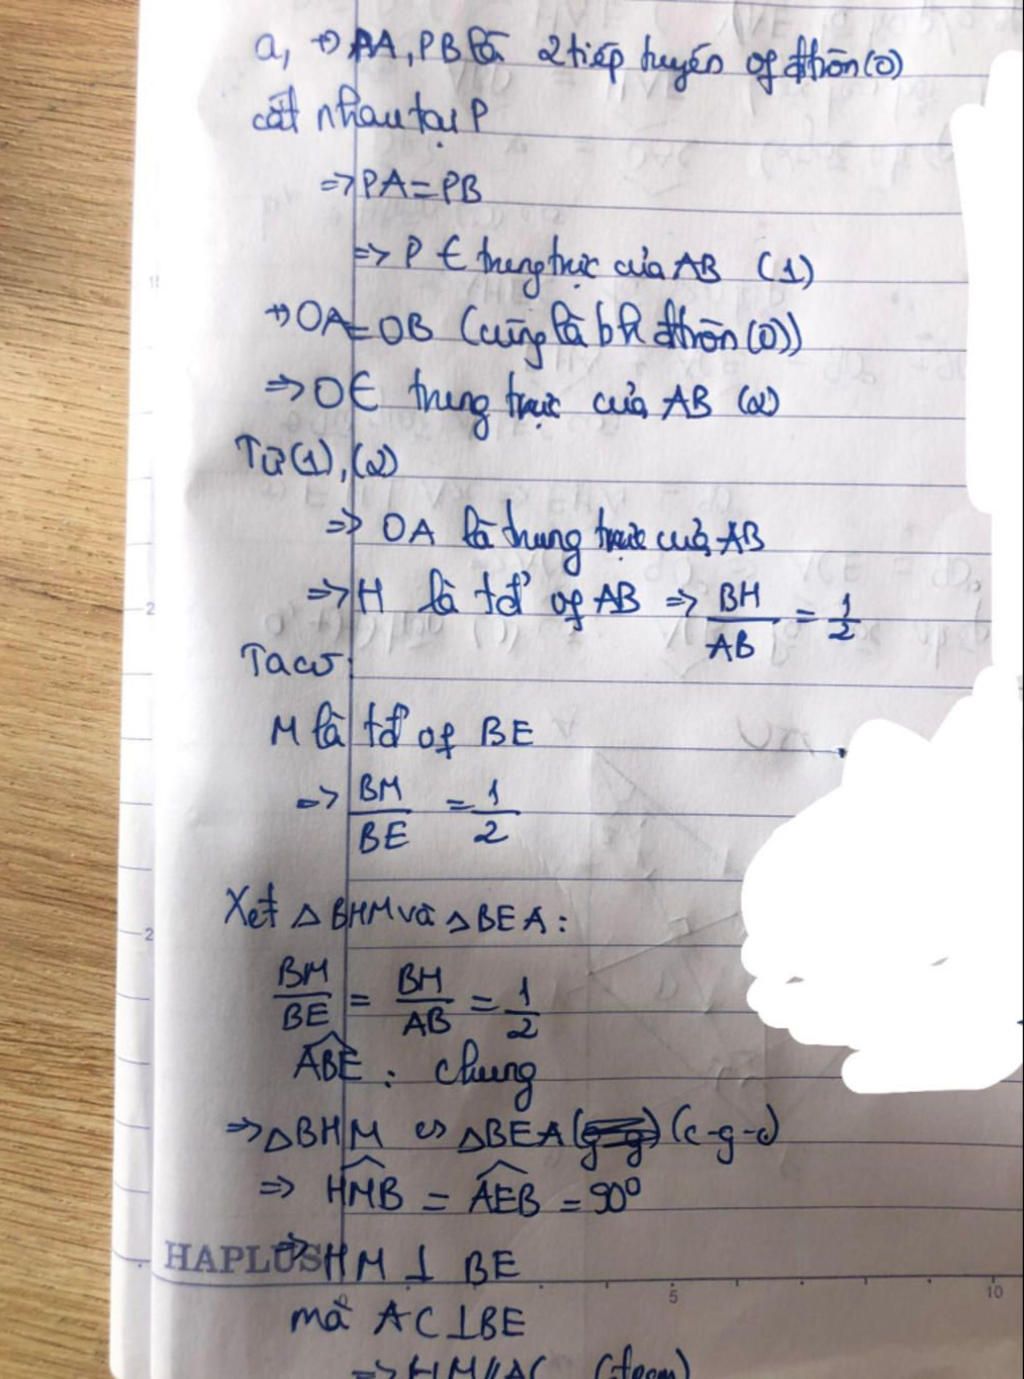 a, +) PA, PB là 2 tiếp tuyến of đtròn (O)
cắt nhau tại P
=> PA = PB
=> P ∈ trung trực của AB (1)
+) OA = OB (cùng là bk đtròn (O))
=> O ∈ trung trực của AB (2)
Từ (1), (2)
=> OA là trung trực của AB
=> H là tđ of AB => BH/AB = 1/2
Ta có:
M là tđ of BE
=> BM/BE = 1/2
Xét △BHM và △BEA:
BM/BE = BH/AB = 1/2
\widehat{ABE}: chung
=> △BHM ∽ △BEA (g-g) (c-g-c)
=> \widehat{HMB} = \widehat{AEB} = 90°
=> HM ⊥ BE
HAPLUS
mà AC ⊥ BE
5
10
=> HM // AC (đpcm)
2
2